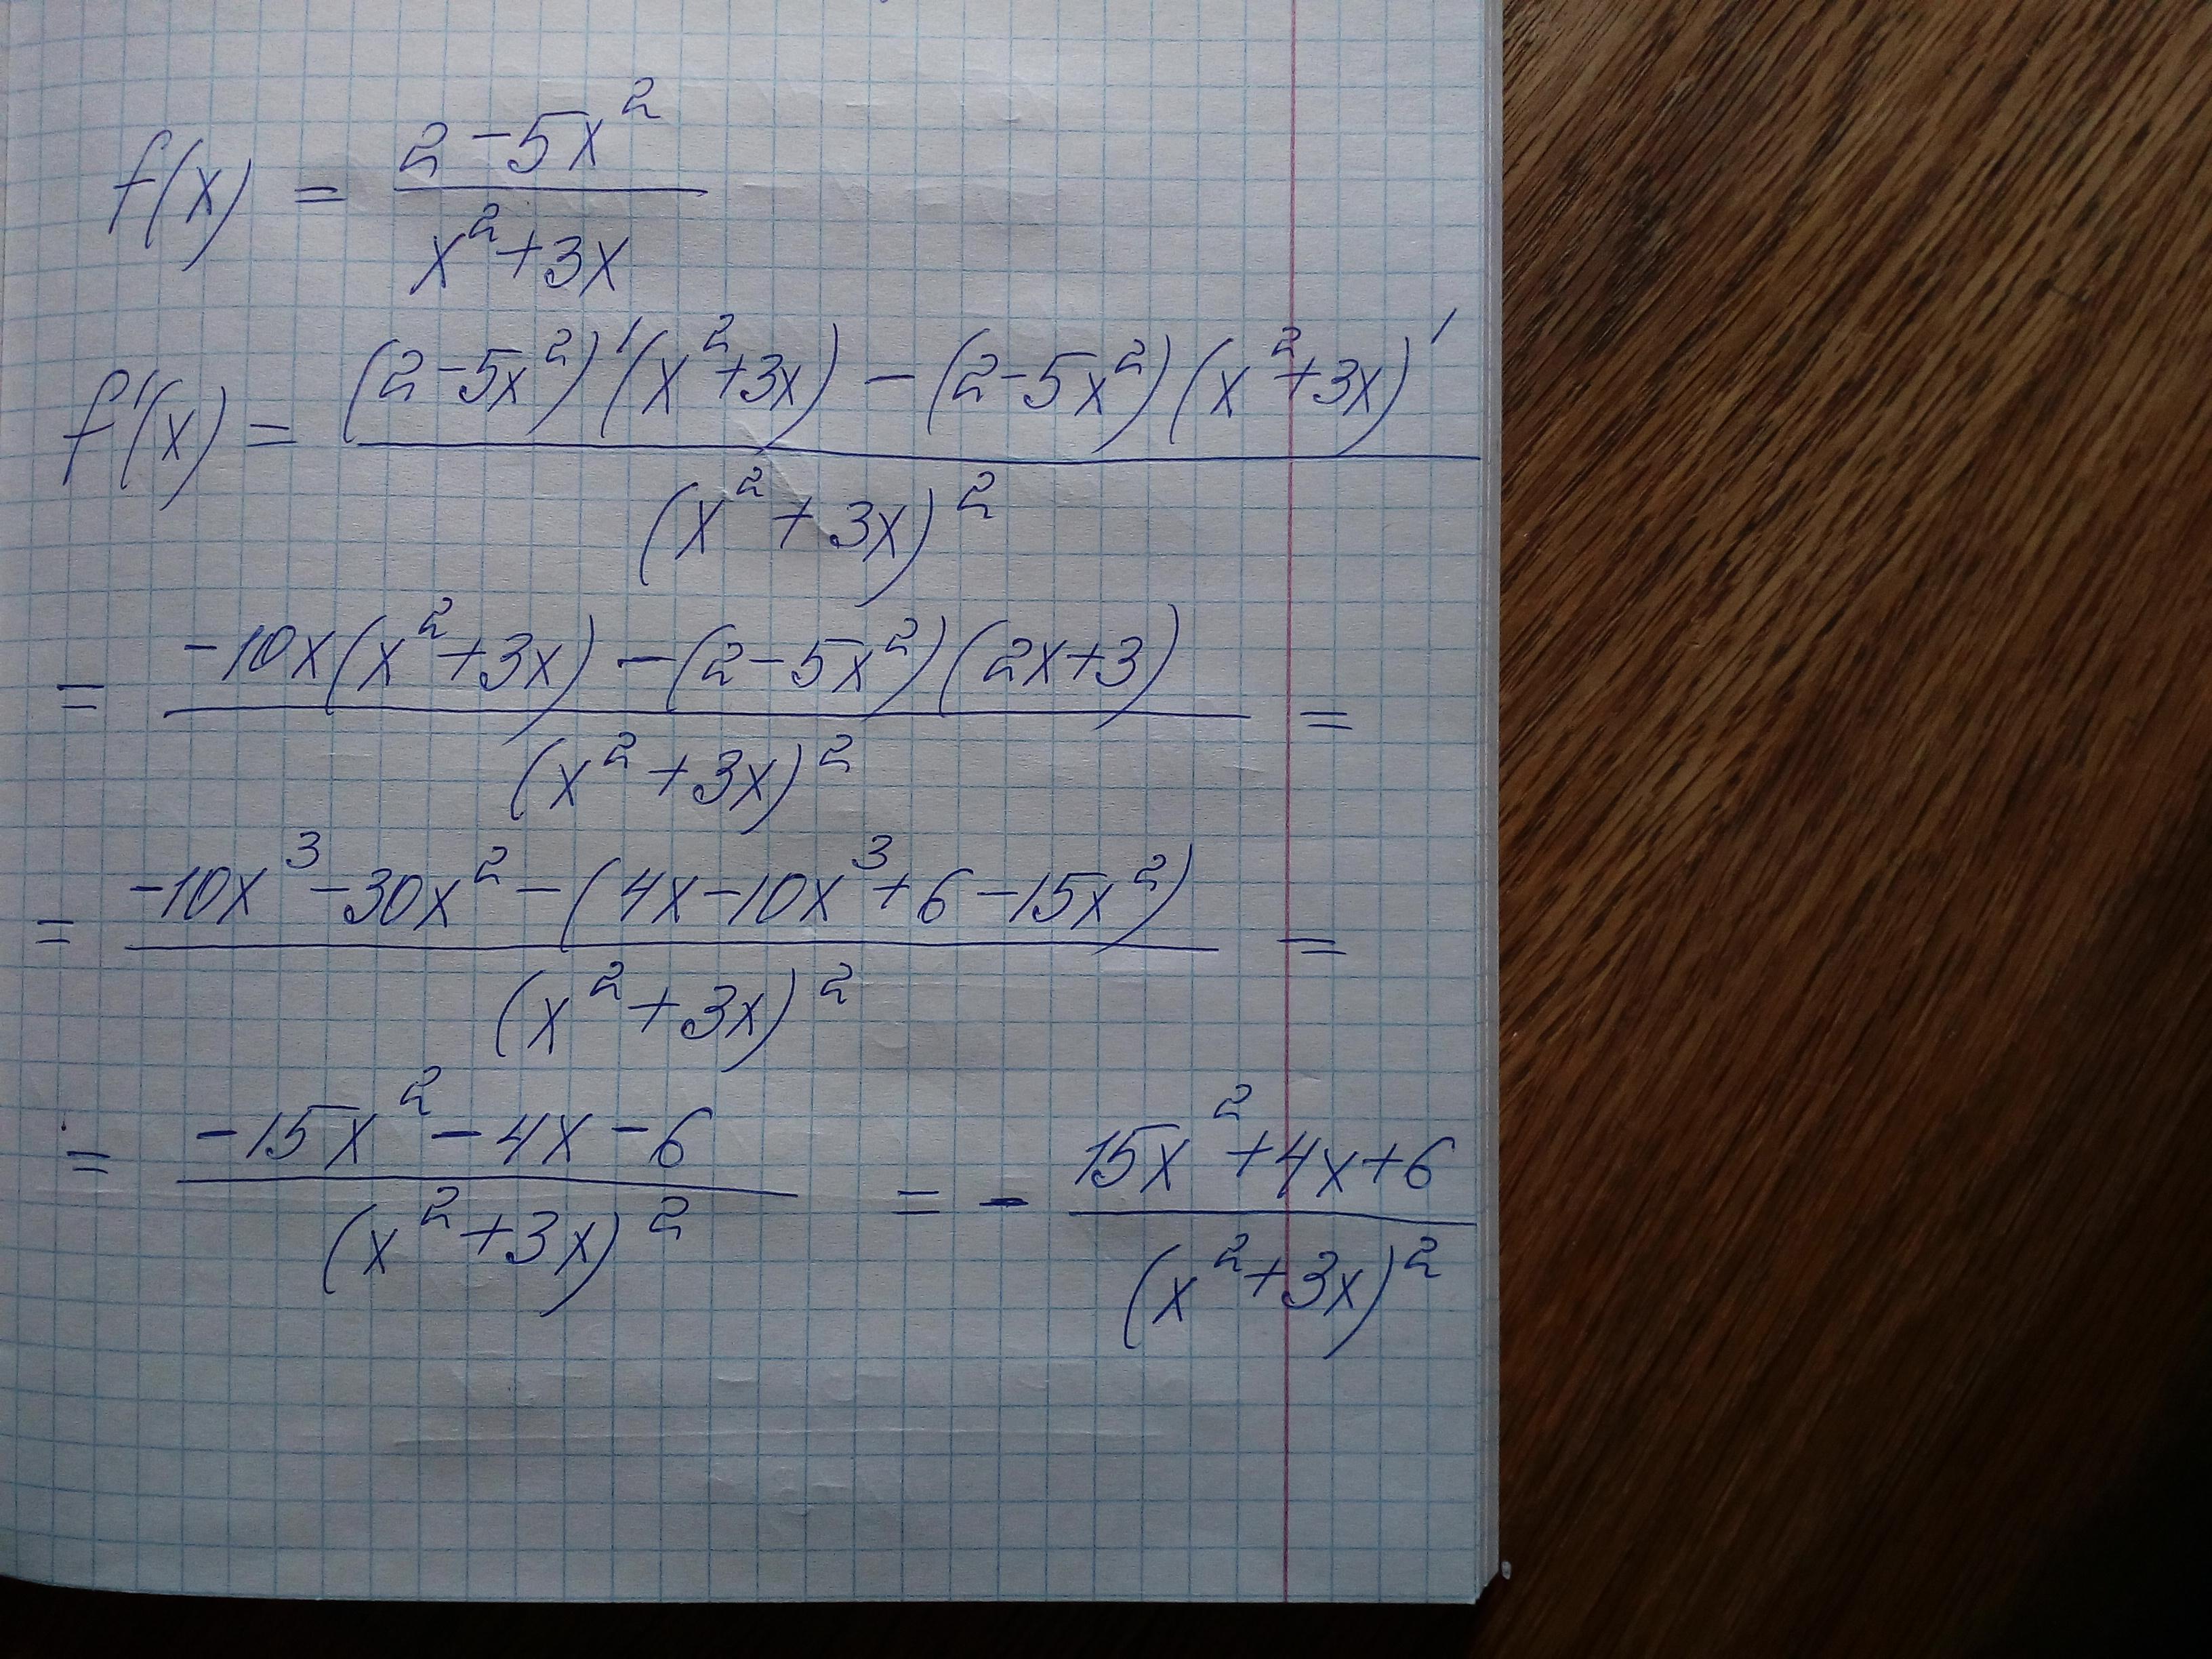 f(x) = (2-5x²)/(x²+3x)
f'(x) = ((2-5x²)'(x²+3x) - (2-5x²)(x²+3x)')/(x²+3x)²
= (-10x(x²+3x) - (2-5x²)(2x+3))/(x²+3x)² =
= (-10x³-30x²-(4x-10x³+6-15x²))/(x²+3x)² =
= (-15x²-4x-6)/(x²+3x)² = - (15x²+4x+6)/(x²+3x)²